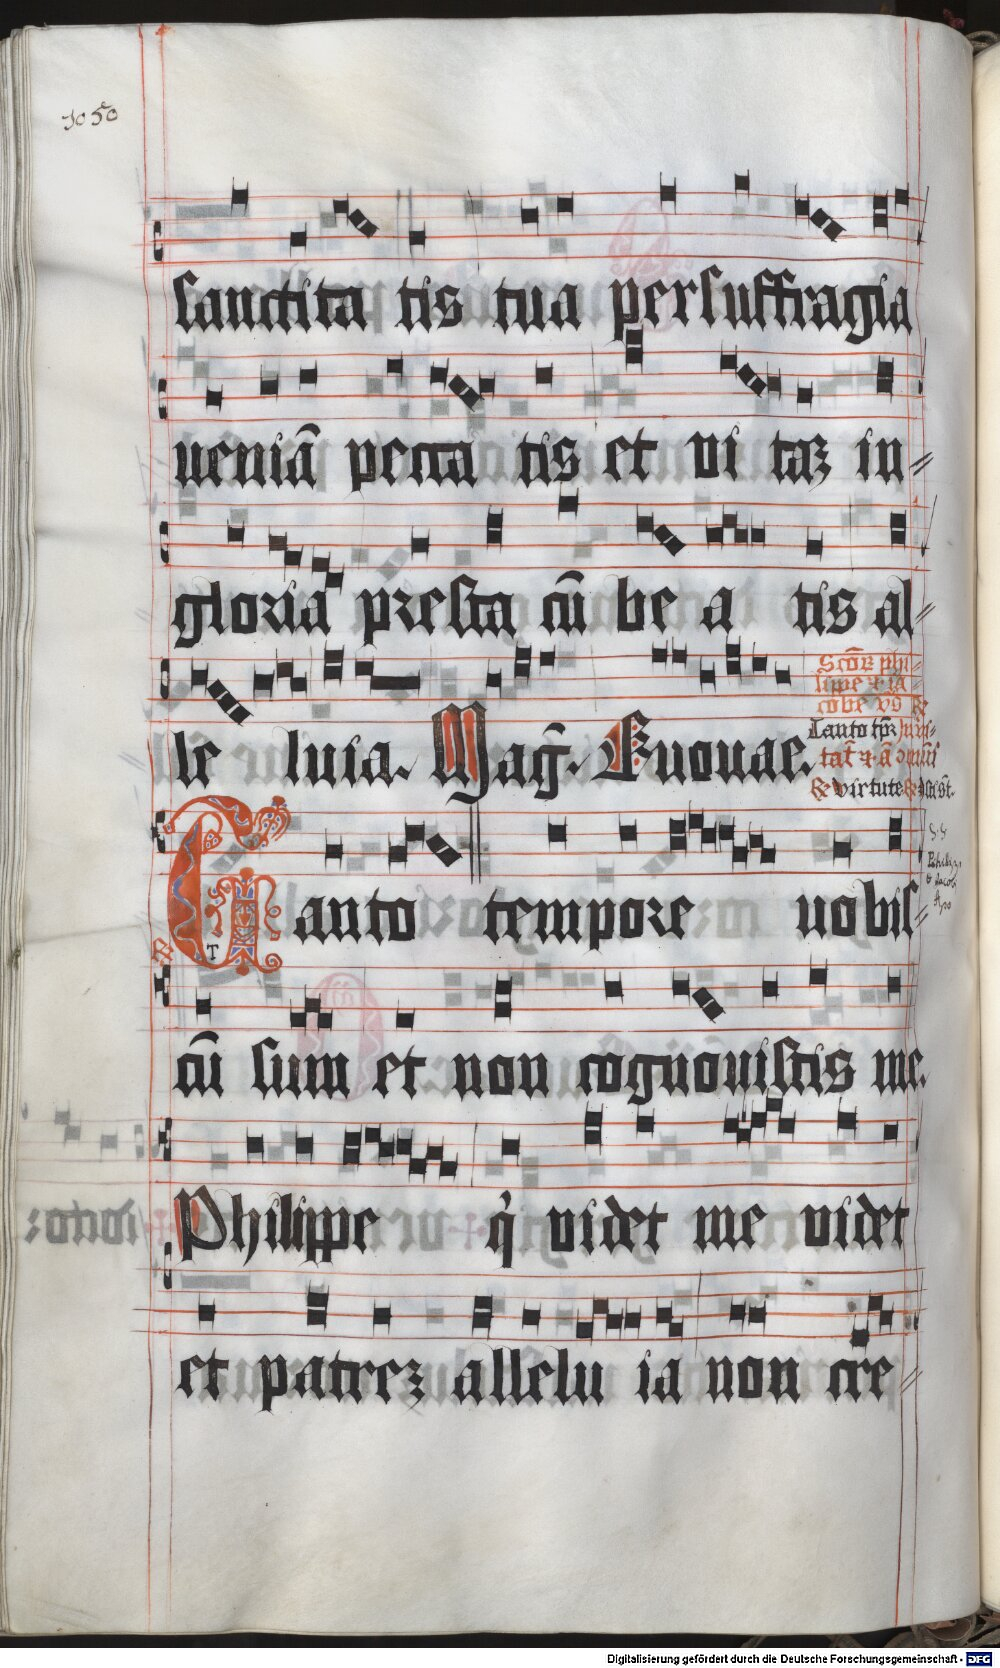 1050
sanctita tis tua persuffragia
ueniā pecca tis et vi taꝫ in⸗
gloria presta cū be a tis al⸗
le luia. Mag̃. Euouae.
Scōꝝ phi⸗
lippe ⁊ ia
cobe vs̄ ℟
Tanto tꝑꝛ
℟ virtute
Tanto tempore uobis⸗
cū sum et non cognouistis me.
Philippe q̇ videt me videt
et patreꝫ allelu ia non cre⸗
Digitalisierung gefördert durch die Deutsche Forschungsgemeinschaft - DFG